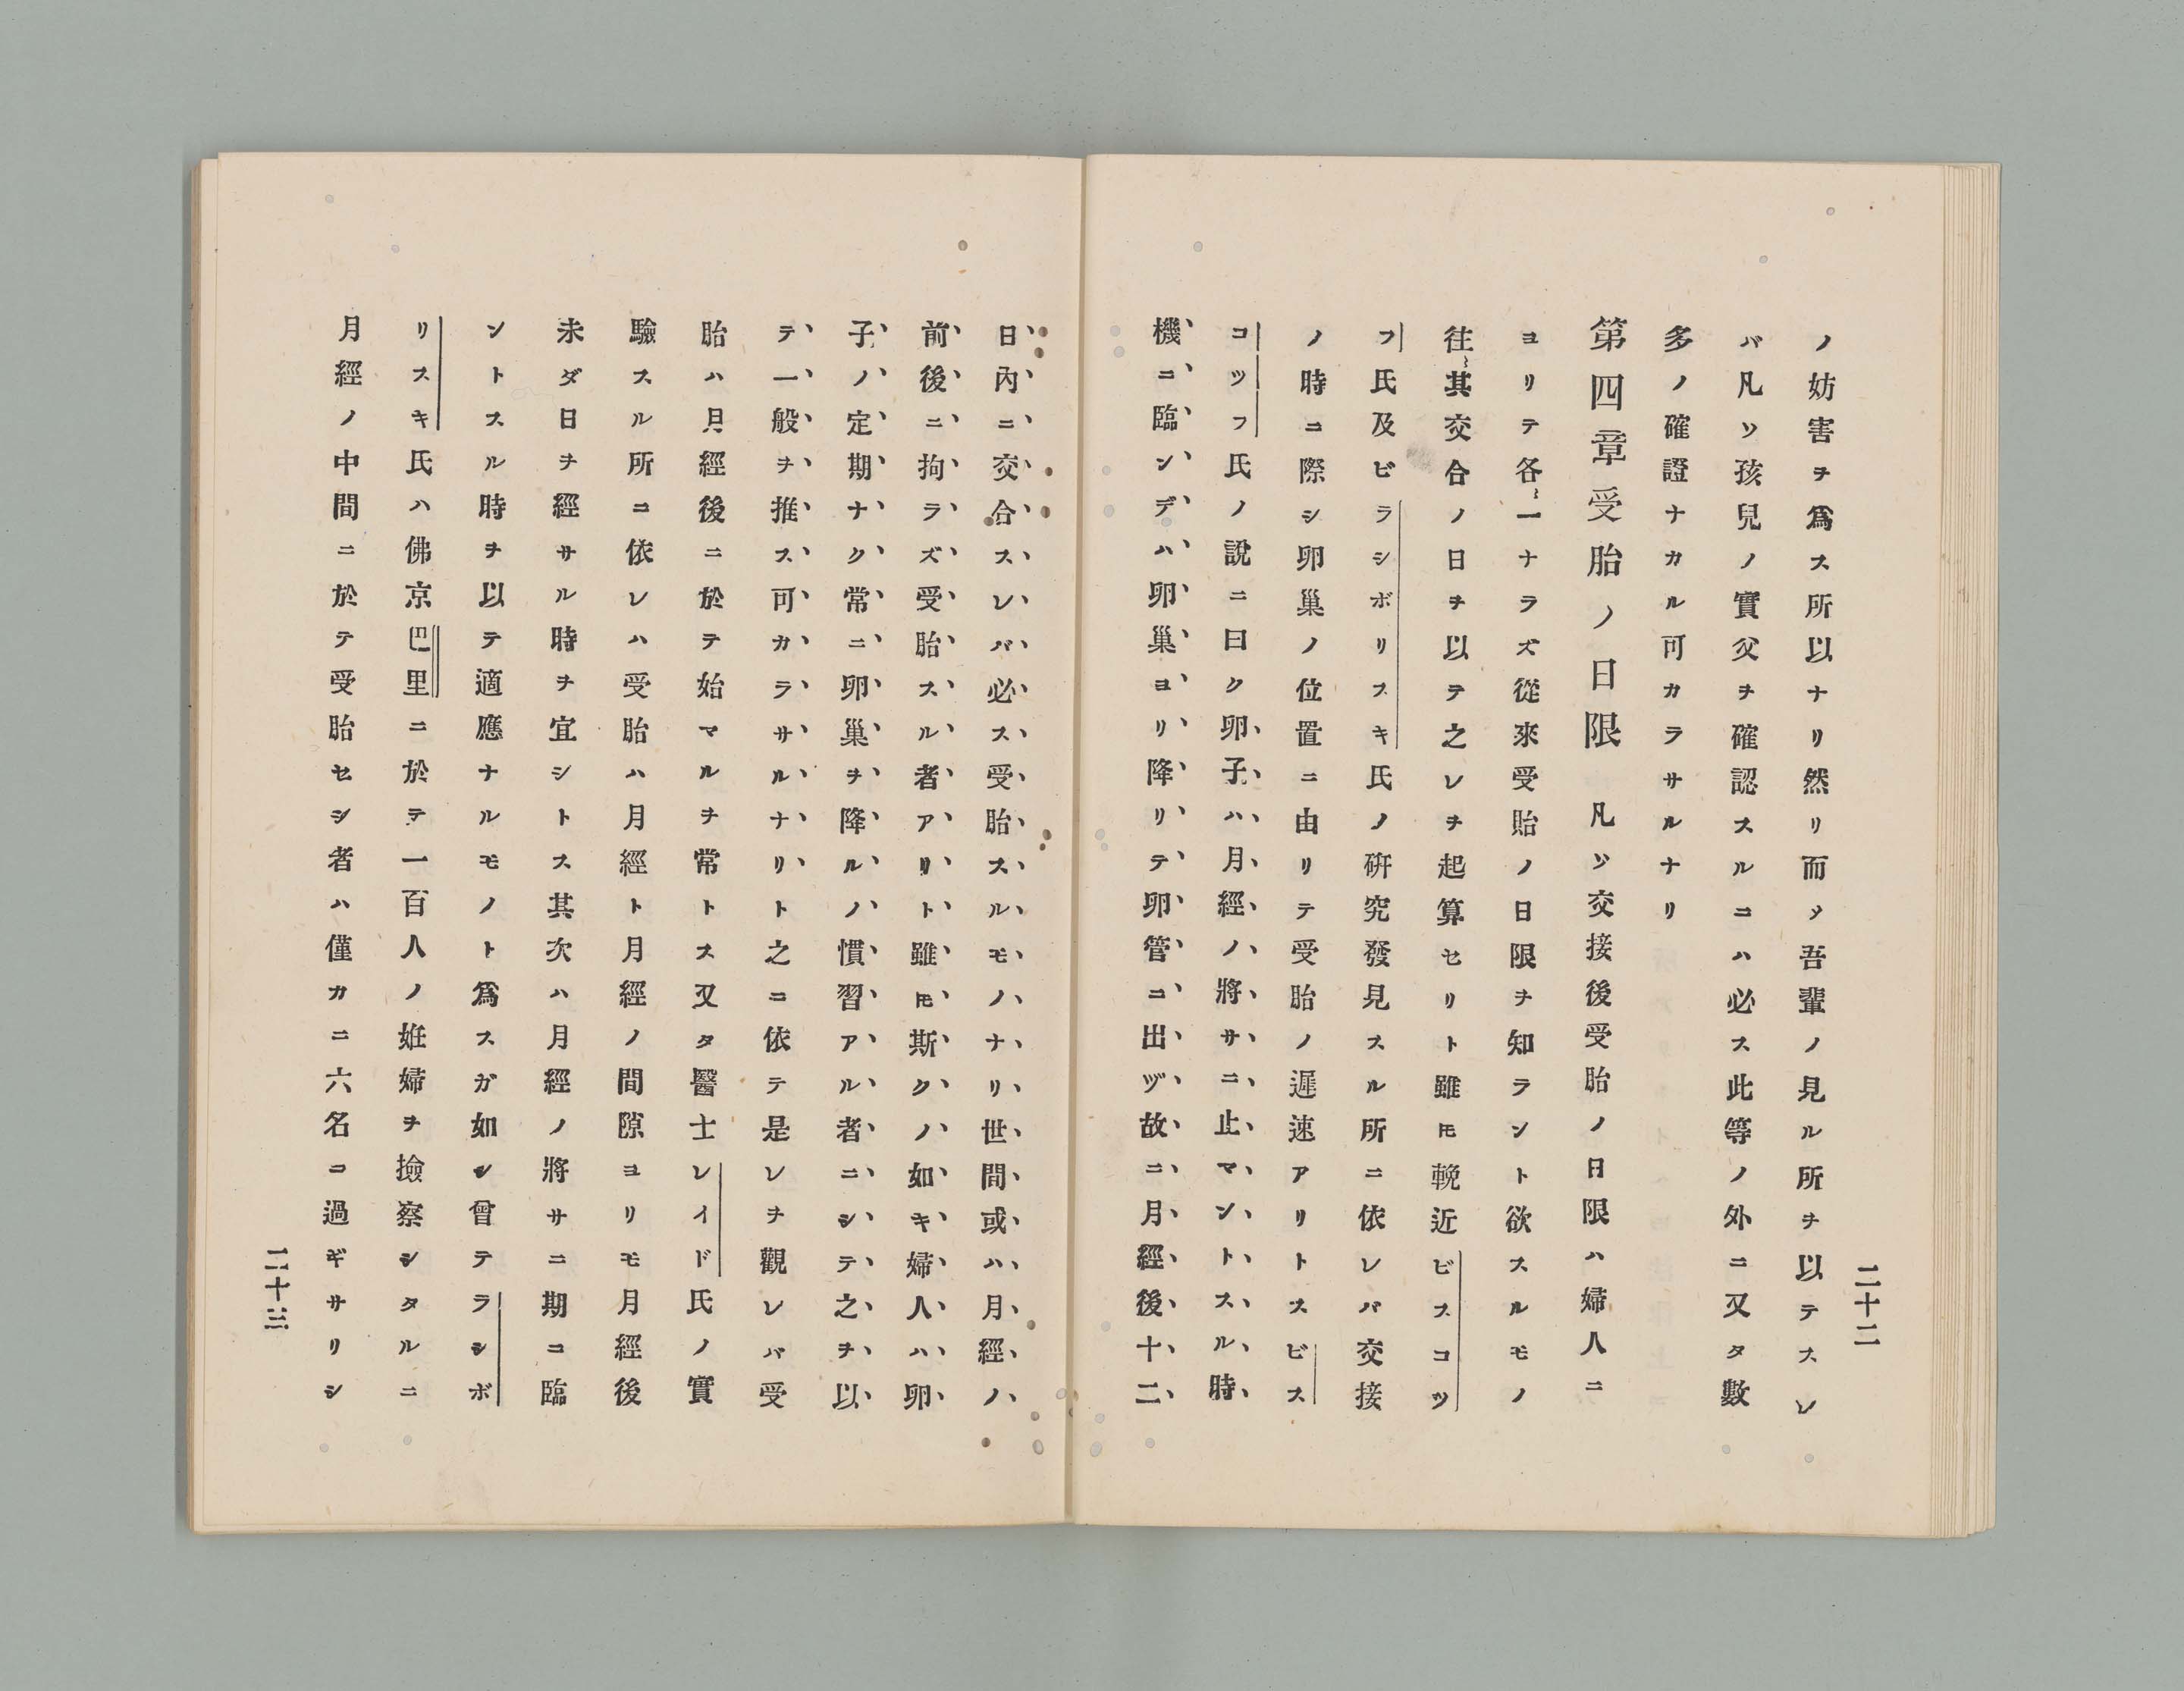 二十二
ノ妨害ヲ爲ス所以ナリ然リ而メ吾輩ノ見ル所ヲ以テスレ
バ凡ソ孩兒ノ實父ヲ確認スルコハ必ス此等ノ外ニ又タ數
多ノ確證ナカル可カラサルナリ
第四章受胎ノ日限 凡ソ交接後受胎ノ日限ハ婦人ニ
ヨリテ各〻一ナラズ從來受胎ノ日限ヲ知ラント欲スルモノ
往〻其交合ノ日ヲ以テ之レヲ起算セリト雖モ輓近ビスコツ
フ氏及ビラシボリスキ氏ノ硏究發見スル所ニ依レバ交接
ノ時ニ際シ卵巢ノ位置ニ由リテ受胎ノ遲速アリトスビス
コツフ氏ノ說ニ曰ク卵子ハ月經ノ將サニ止マントスル時
機ニ臨ンデハ卵巢ヨリ降リテ卵管ニ出ヅ故ニ月經後十二
日內ニ交合スレバ必ス受胎スルモノナリ世間或ハ月經ノ
前後ニ拘ラズ受胎スル者アリト雖モ斯クノ如キ婦人ハ卵
子ノ定期ナク常ニ卵巢ヲ降ルノ慣習アル者ニシテ之ヲ以
テ一般ヲ推ス可カラサルナリト之ニ依テ是レヲ觀レバ受
胎ハ月經後ニ於テ始マルヲ常トス又タ醫士レイド氏ノ實
驗スル所ニ依レハ受胎ハ月經ト月經ノ間隙ヨリモ月經後
未ダ日ヲ經サル時ヲ宜シトス其次ハ月經ノ將サニ期ニ臨
ントスル時ヲ以テ適應ナルモノト爲スガ如シ曾テラシボ
リスキ氏ハ佛京巴里ニ於テ一百人ノ姙婦ヲ撿察シタルニ
月經ノ中間ニ於テ受胎セシ者ハ僅カニ六名ニ過ギサリシ
二十三